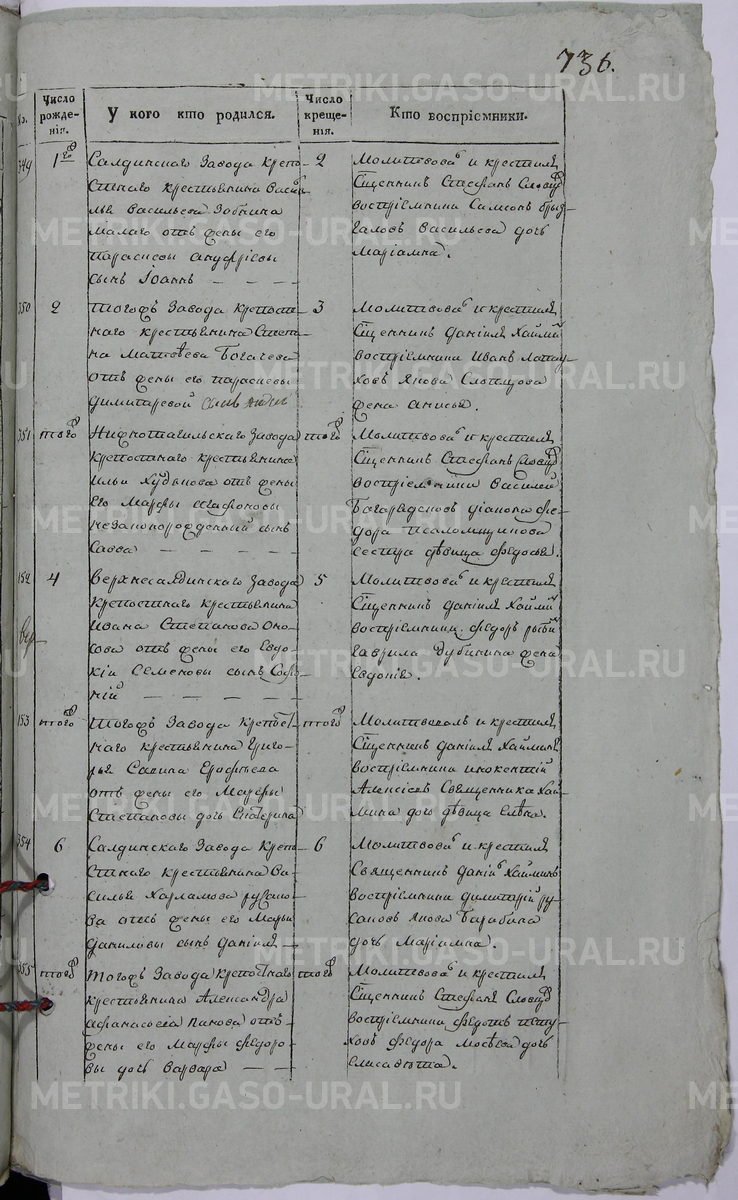 736.
Число рожденія.
У кого кто родился.
Число крещенія.
Кто воспріемники.
349
1го
Салдинскаго Завода крепо-
стнаго крестьянина Васи
лья Васильева Зобнина
малаго отъ жены его
Параскевы
сынъ Іоаннъ — — —
2
Молитвова и крестилъ
Сщенникъ Стефанъ Словцо
воспріемники Симеонъ
галовъ Васильева дочь
Маріамна.
350
2
Тогожъ Завода крепост
наго крестьянина Степа
на Матвѣева Богачева
отъ жены его Параскевы
Димитревой сынъ
3
Молитвова и крестилъ
Сщенникъ Даніилъ Хайми
воспріемники Иванъ
ховъ Якова Слотцова
жена Анисья.
351
того
Нижнотагильскаго Завода
крепостнаго крестьянина
Ильи Худякова отъ жены
Его Марфы Агафоновы
незаконорожденный сынъ
Савва — — — —
того
Молитвова и крестилъ
Сщенникъ Стефанъ Словцо
воспріемники Василей
діакона Фе
дора Псаломщикова
сестра дѣвица Федосья.
352
4
Верхнесалдинскаго Завода
крепостнаго крестьянина
Ивана Степанова Оно-
сова отъ жены его Евдо
кіи Семеновы сынъ Софо
ній — — — —
5
Молитвова и крестилъ
Сщенникъ Даніилъ Хайми
воспріемники Федоръ
Гаврила Дубинина жена
Евдокія.
353
того
Тогожъ Завода крепост
наго крестьянина Григо-
рья Савина Ерофѣева
отъ жены его Марфы
Степановы дочь Екатерина
того
Молитвовалъ и крестилъ
Сщенникъ Даніилъ Хайминъ
воспріемники Инокентій
Алексѣевъ Священника Хай
мина дочь дѣвица Елѣна.
354
6
Салдинскаго Завода крепо
стнаго крестьянина Ва-
силья Харламова Русако
ва отъ жены его Марьи
Даниловы сынъ Даніилъ —
6
Молитвова и крестилъ
Священникъ Даніи Хайминъ
воспріемники Димитрій Ру
саковъ Якова Барабина
дочь Маріамна.
355
того
Тогожъ Завода крепостнаго
крестьянина Александра
Афанасьева Панова отъ
жены его Марфы Федоро-
вы дочь Варвара — —
того
Молитвова и крестилъ
Сщенникъ Стефанъ Словцо
воспріемники Федотъ Пету-
ховъ Федора Мосѣева дочь
Елисавѣта.
METRIKI.GASO-URAL.RU